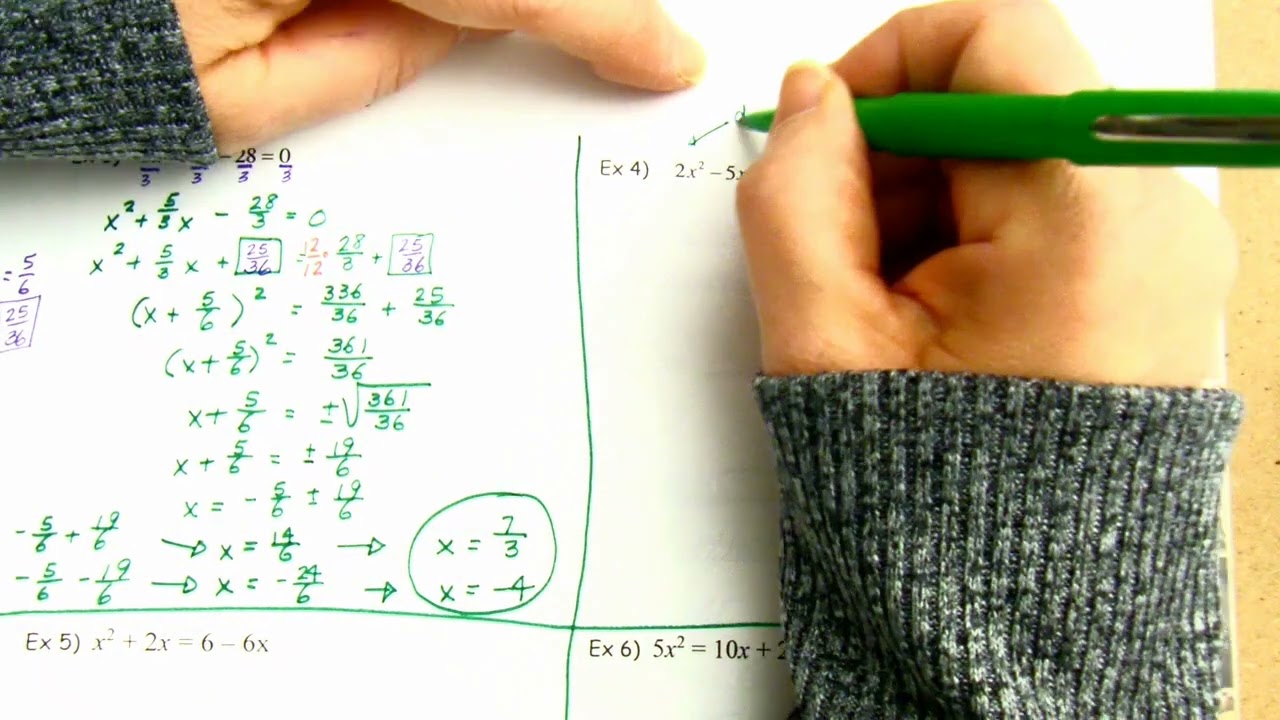 - 28 = 0
3 3 3 3
x² + 5/3 x - 28/3 = 0
x² + 5/3 x + 25/36 = 12/12 · 28/3 + 25/36
= 5/6
25/36
(x + 5/6)² = 336/36 + 25/36
(x + 5/6)² = 361/36
x + 5/6 = ±√361/36
x + 5/6 = ± 19/6
x = - 5/6 ± 19/6
- 5/6 + 19/6 → x = 14/6 → x = 7/3
- 5/6 - 19/6 → x = - 24/6 → x = -4
Ex 4) 2x² - 5x
Ex 5) x² + 2x = 6 - 6x
Ex 6) 5x² = 10x + 2